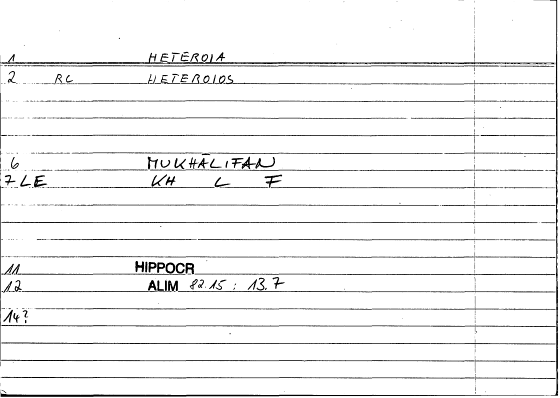 1 HETEROIA
2 RC HETEROIOS
6 MUKHĀLIFAN
7 LE KH L F
11 HIPPOCR
12 ALIM 82.15 : 13.7
14?